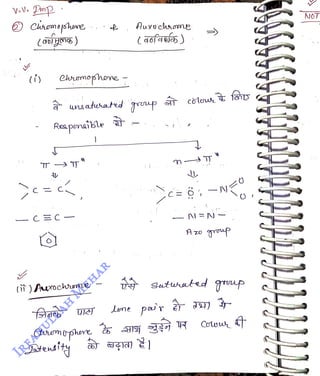 V.V. Imp.
② Chromophore & Auxochrome ⇒
(वर्णमूलक) (वर्णवर्धक)
NOT
(i) Chromophore -
वे unsaturated group जो colour के लिए
Responsible हो -
π → π* n → π*
⇓ ⇓
C = C C = Ö, -N O O
- C ≡ C - - N = N -
Azo group
(ii) Auxochrome - ऐसे saturated group
जिनके पास lone pair हो तथा ये
Chromophore के साथ जुड़ने पर colour की
Intensity को बढ़ाता है।